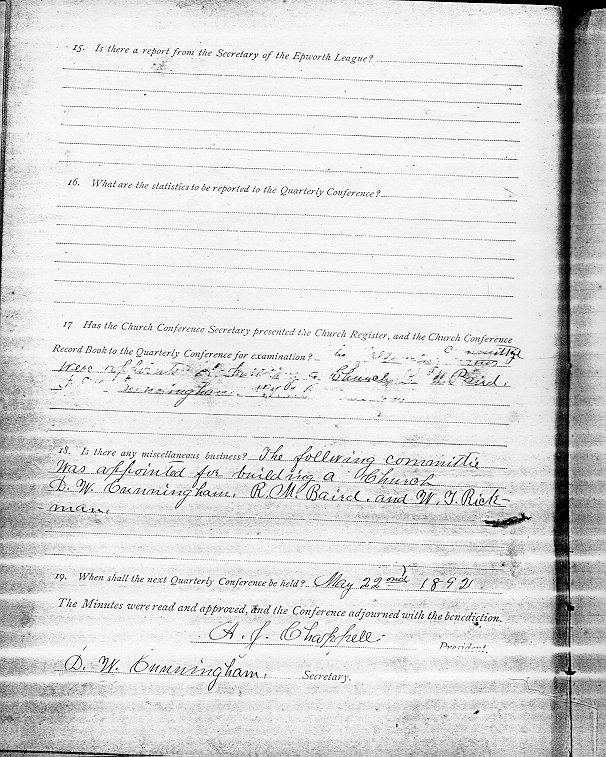 15. Is there a report from the Secretary of the Epworth League?
16. What are the statistics to be reported to the Quarterly Conference?
17 Has the Church Conference Secretary presented the Church Register, and the Church Conference
Record Book to the Quarterly Conference for examination?
were appointed Church Baird.
Cunningham
18. Is there any miscellaneous business? The following committie
was appointed for building a Church
D. W. Cunningham. R. M. Baird. and W. T. Rick-
man.
19. When shall the next Quarterly Conference be held? May 22nd 1892
The Minutes were read and approved, and the Conference adjourned with the benediction.
A. J. Chappell
President.
D. W. Cunningham. Secretary.